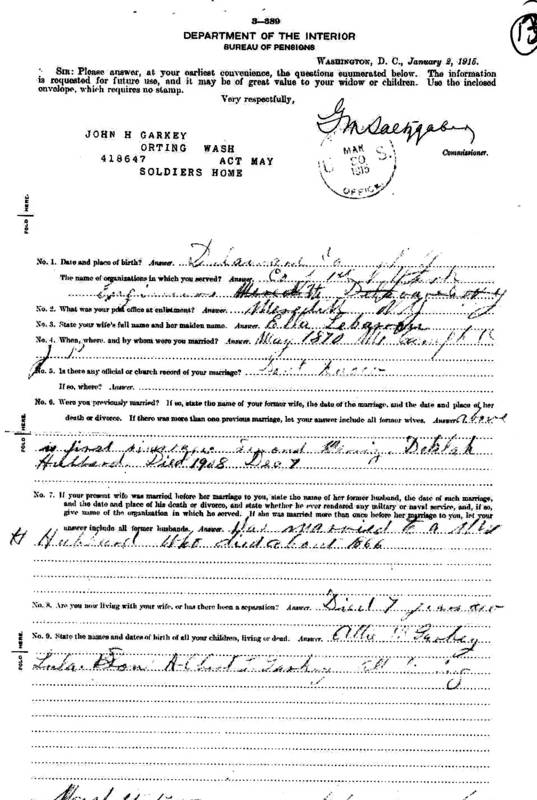 3—389
13
DEPARTMENT OF THE INTERIOR
BUREAU OF PENSIONS
WASHINGTON, D. C., January 2, 1915.
SIR: Please answer, at your earliest convenience, the questions enumerated below. The information
is requested for future use, and it may be of great value to your widow or children. Use the inclosed
envelope, which requires no stamp.
Very respectfully,
G M Saltzgaber
Commissioner.
JOHN H GARKEY
ORTING WASH
418647 ACT MAY
SOLDIERS HOME
U. S.
MAR
20
1915
OFFICE
FOLD HERE.
No. 1. Date and place of birth? Answer. Delaware Co N Y
The name of organizations in which you served? Answer. Co 1st N Y
Engineers Meredith Delaware Co N Y
No. 2. What was your post office at enlistment? Answer. Meredith N Y
No. 3. State your wife's full name and her maiden name. Answer. Ella
No. 4. When, where, and by whom were you married? Answer. May 1870
J P
No. 5. Is there any official or church record of your marriage? Dont know
If so, where? Answer.
No. 6. Were you previously married? If so, state the name of your former wife, the date of the marriage, and the date and place of her
death or divorce. If there was more than one previous marriage, let your answer include all former wives. Answer. above
FOLD HERE.
is first Delilah
Hubbard. Died 1908 Dec 7
No. 7. If your present wife was married before her marriage to you, state the name of her former husband, the date of such marriage,
and the date and place of his death or divorce, and state whether he ever rendered any military or naval service, and, if so,
give name of the organization in which he served. If she was married more than once before her marriage to you, let your
answer include all former husbands. Answer. Was married to a
H Hubbard Who died about 1866
No. 8. Are you now living with your wife, or has there been a separation? Answer. Died 7 years ago
No. 9. State the names and dates of birth of all your children, living or dead. Answer. Garkey
FOLD HERE.
Albert Garkey All living